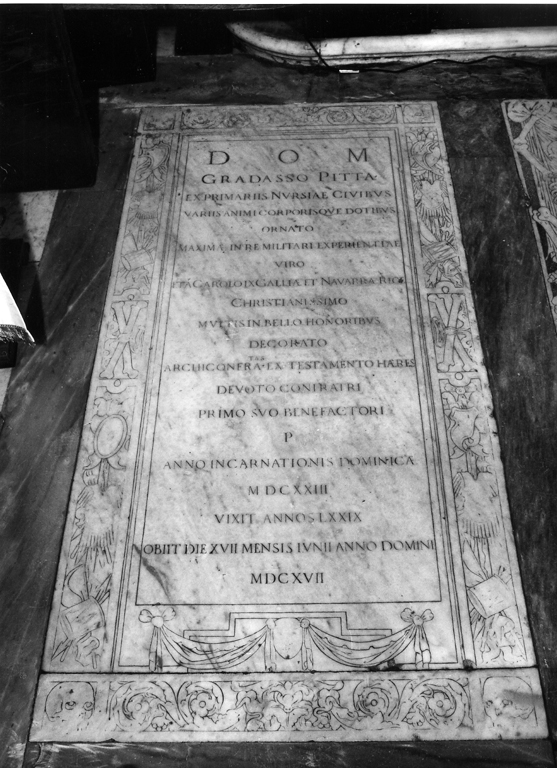 D O M
GRADASSO PITTA
EX PRIMARIIS NVRSIAE CIVIBVS
VARIIS ANIMI CORPORISQVE DOTIBVS
ORNATO
MAXIMA IN RE MILITARI EXPERIENTIAE
VIRO
CAROLO IX GALLIA ET NAVARRA
CHRISTIANISSIMO
MVLTIS IN BELLO HONORIBVS
DECORATO
EX TESTAMENTO HÆRES
DEVOTO CONFRATRI
PRIMO SVO BENEFACTORI
P
ANNO INCARNATIONIS DOMINICÆ
MDCXXIII
VIXIT ANNOS LXXIX
OBIIT DIE XVII MENSIS IVNII ANNO DOMINI
MDCXVII